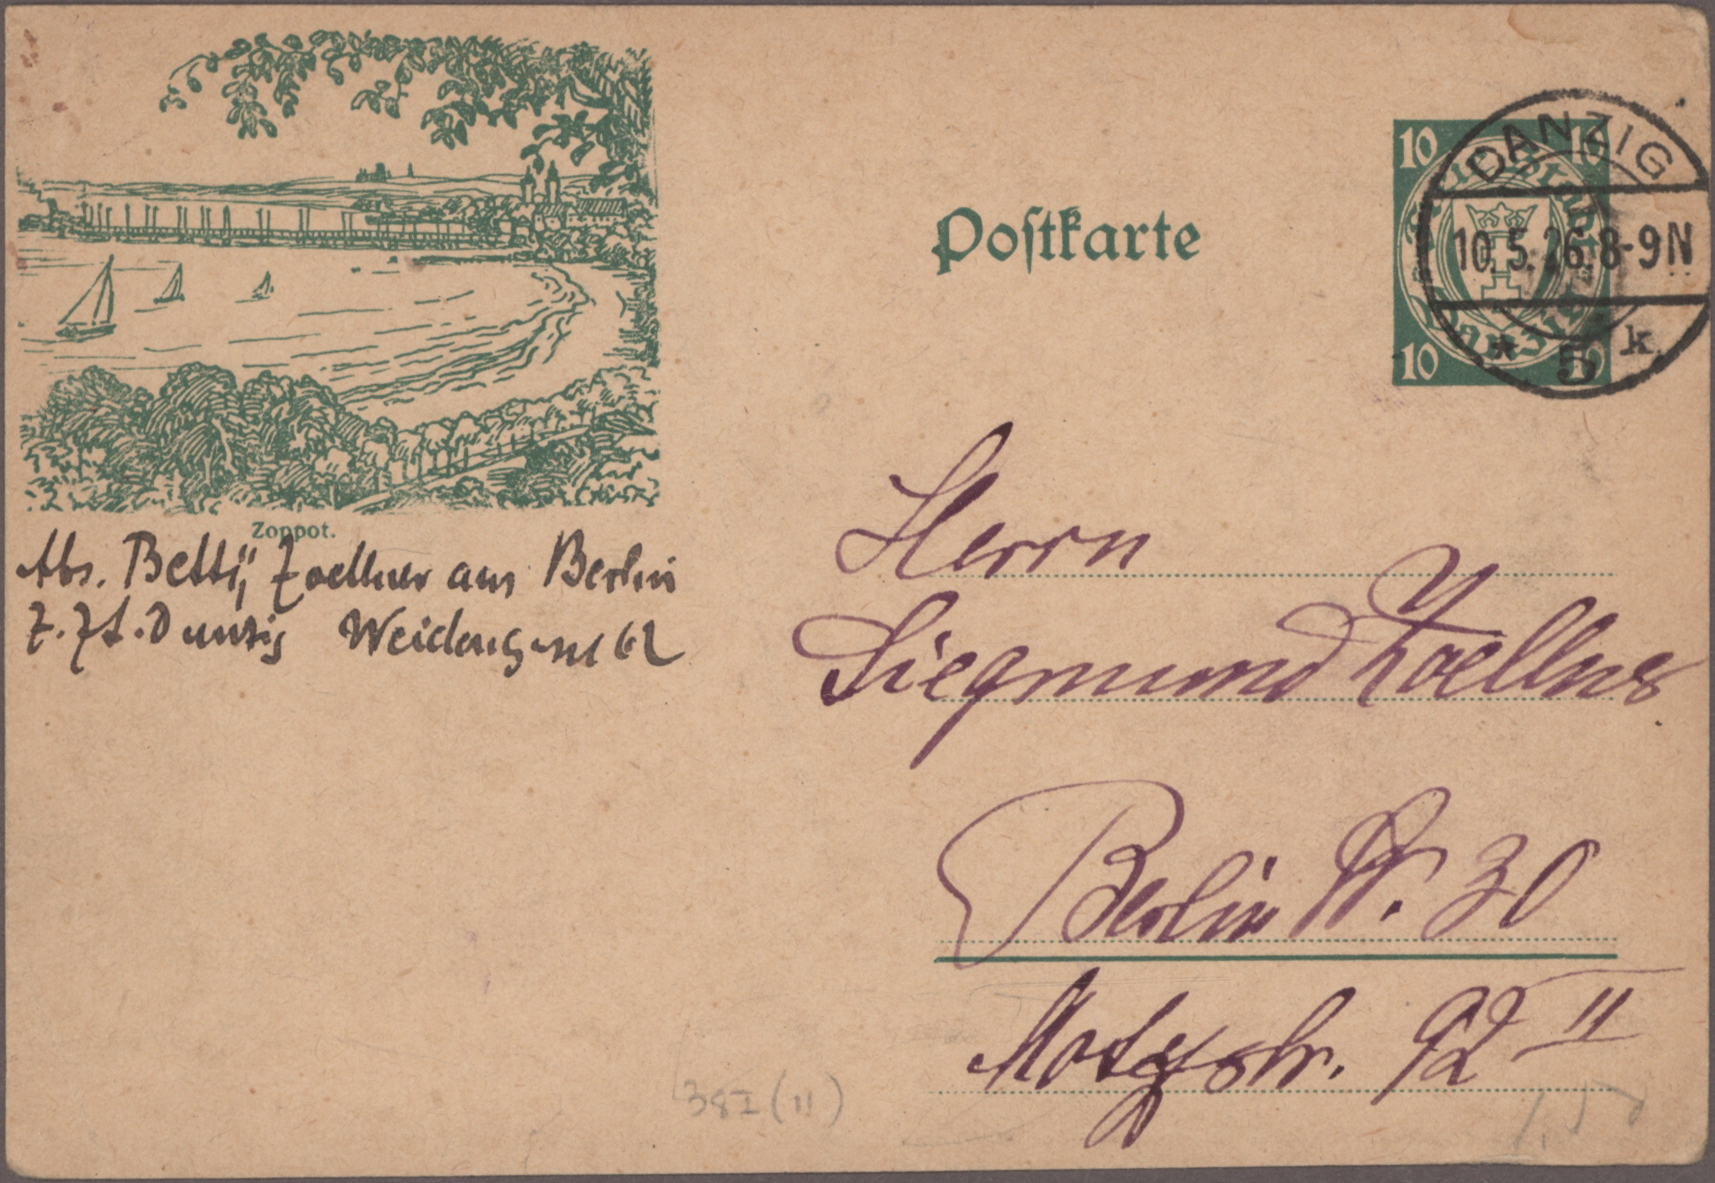 Zoppot.
Abs. Betty Zoellner aus Berlin
z. Zt. Danzig Weidengasse 62
Postkarte
10 10
Freie Stadt
Danzig
10 10
DANZIG
10.5.26.8-9N
* 5 k.
Herrn
Siegmund Zoellner
Berlin W. 30
Motzstr. 92 II
38I (11)